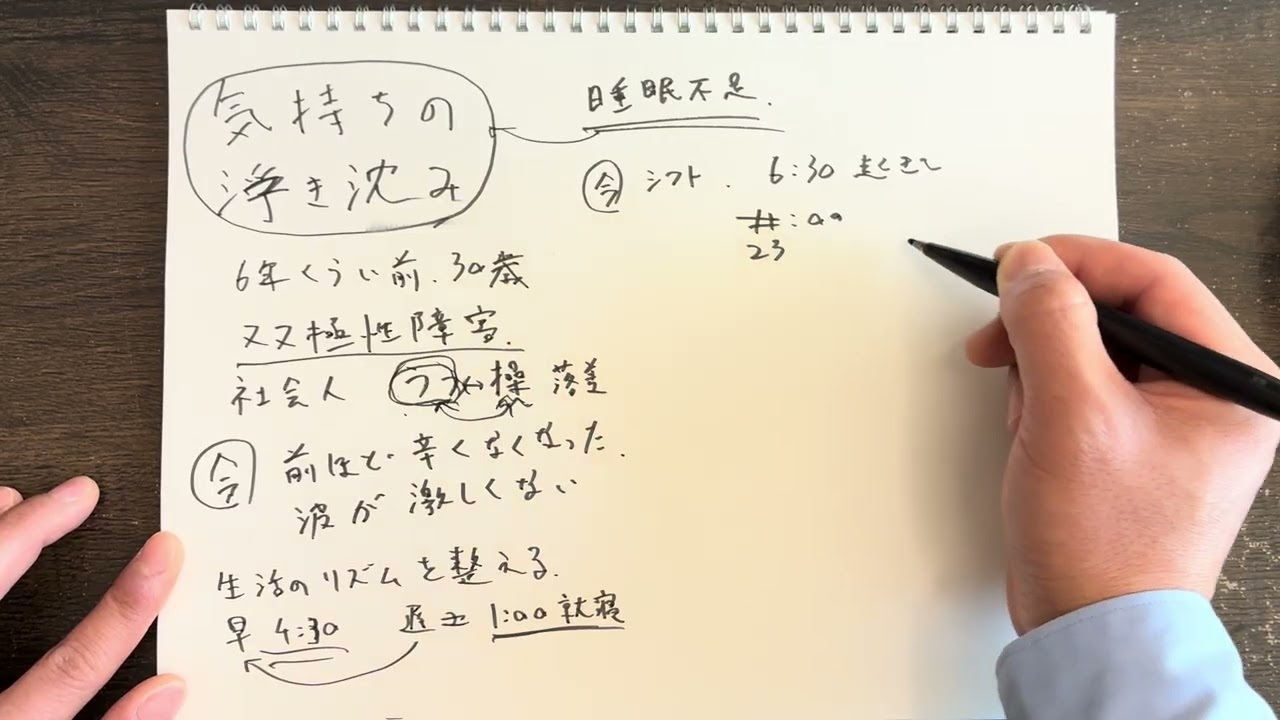 気持ちの
浮き沈み
6年くらい前. 30歳
双極性障害.
社会人 うつ↔操 落差
今 前ほど辛くなくなった.
波が激しくない
生活のリズムを整える.
早 4:30 遅ﾖ 1:00就寝
睡眠不足.
今 シフト. 6:30 起きて
:00
23